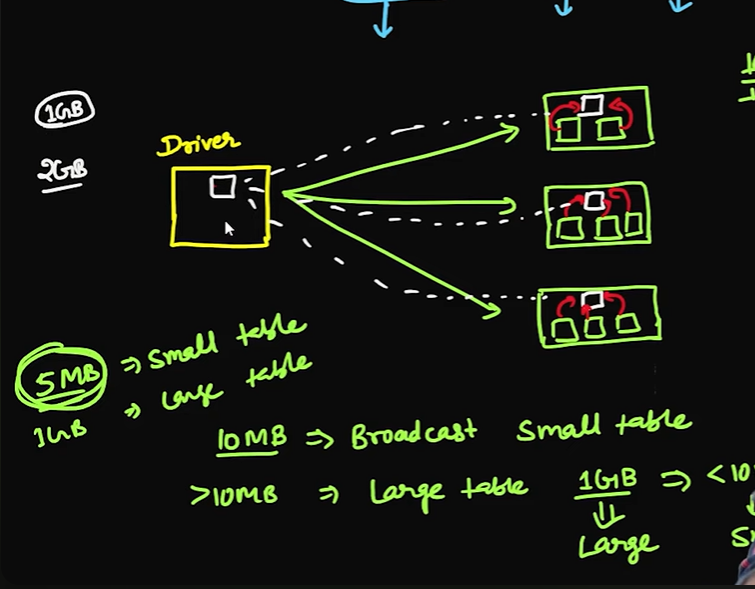 1GB
2GB
Driver
5MB ⇒ Small table
1GB ⇒ Large table
10MB ⇒ Broadcast Small table
>10MB ⇒ Large table 1GB ⇒ <10
Large